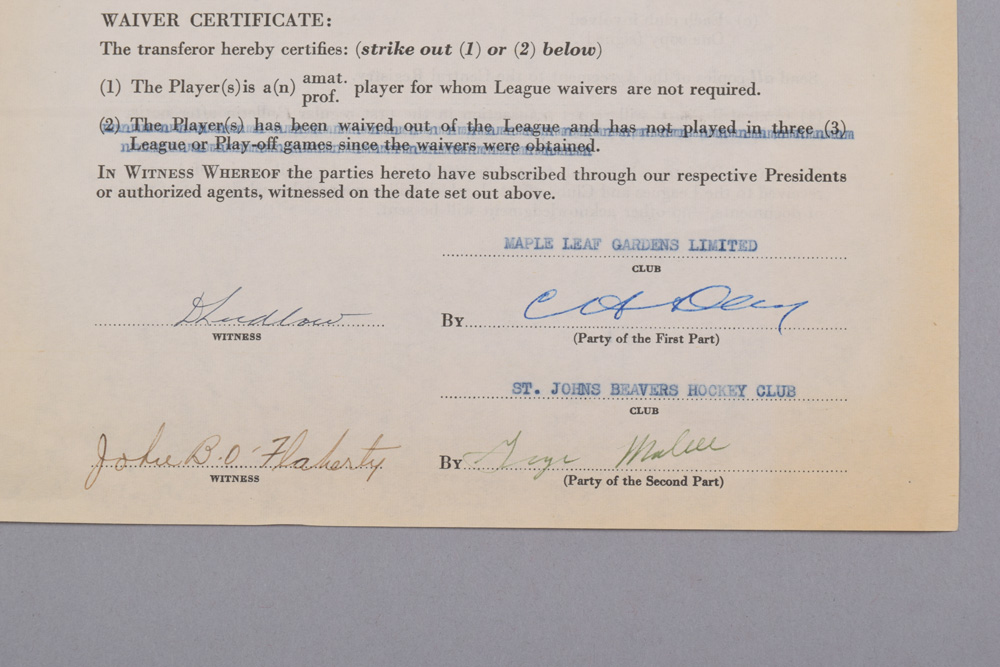 WAIVER CERTIFICATE:
The transferor hereby certifies: (strike out (1) or (2) below)
(1) The Player(s)is a(n) amat. prof. player for whom League waivers are not required.
(2) The Player(s) has been waived out of the League and has not played in three (3)
League or Play-off games since the waivers were obtained.
IN WITNESS WHEREOF the parties hereto have subscribed through our respective Presidents
or authorized agents, witnessed on the date set out above.
MAPLE LEAF GARDENS LIMITED
CLUB
DLudlow By C H Day
WITNESS (Party of the First Part)
ST. JOHNS BEAVERS HOCKEY CLUB
CLUB
John B. O'Flaherty By
WITNESS (Party of the Second Part)